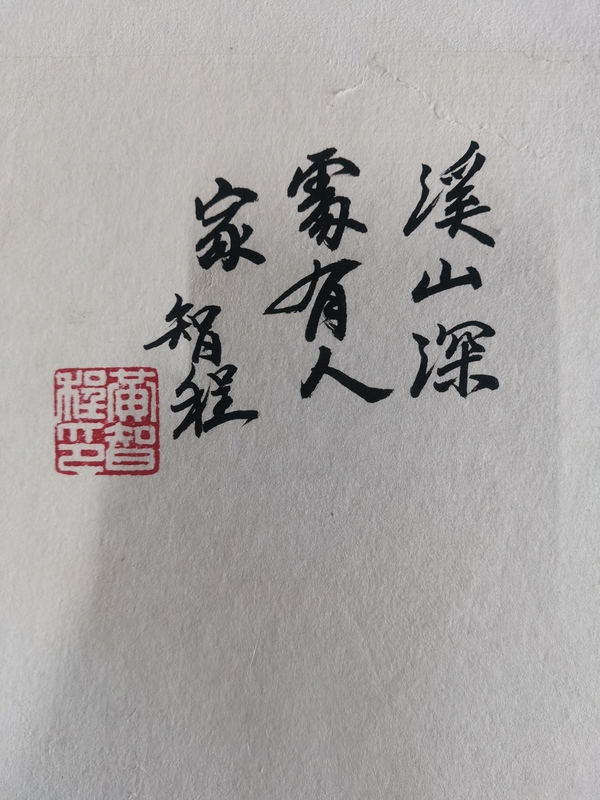 溪山深
處有人
家 智程
黄智程印